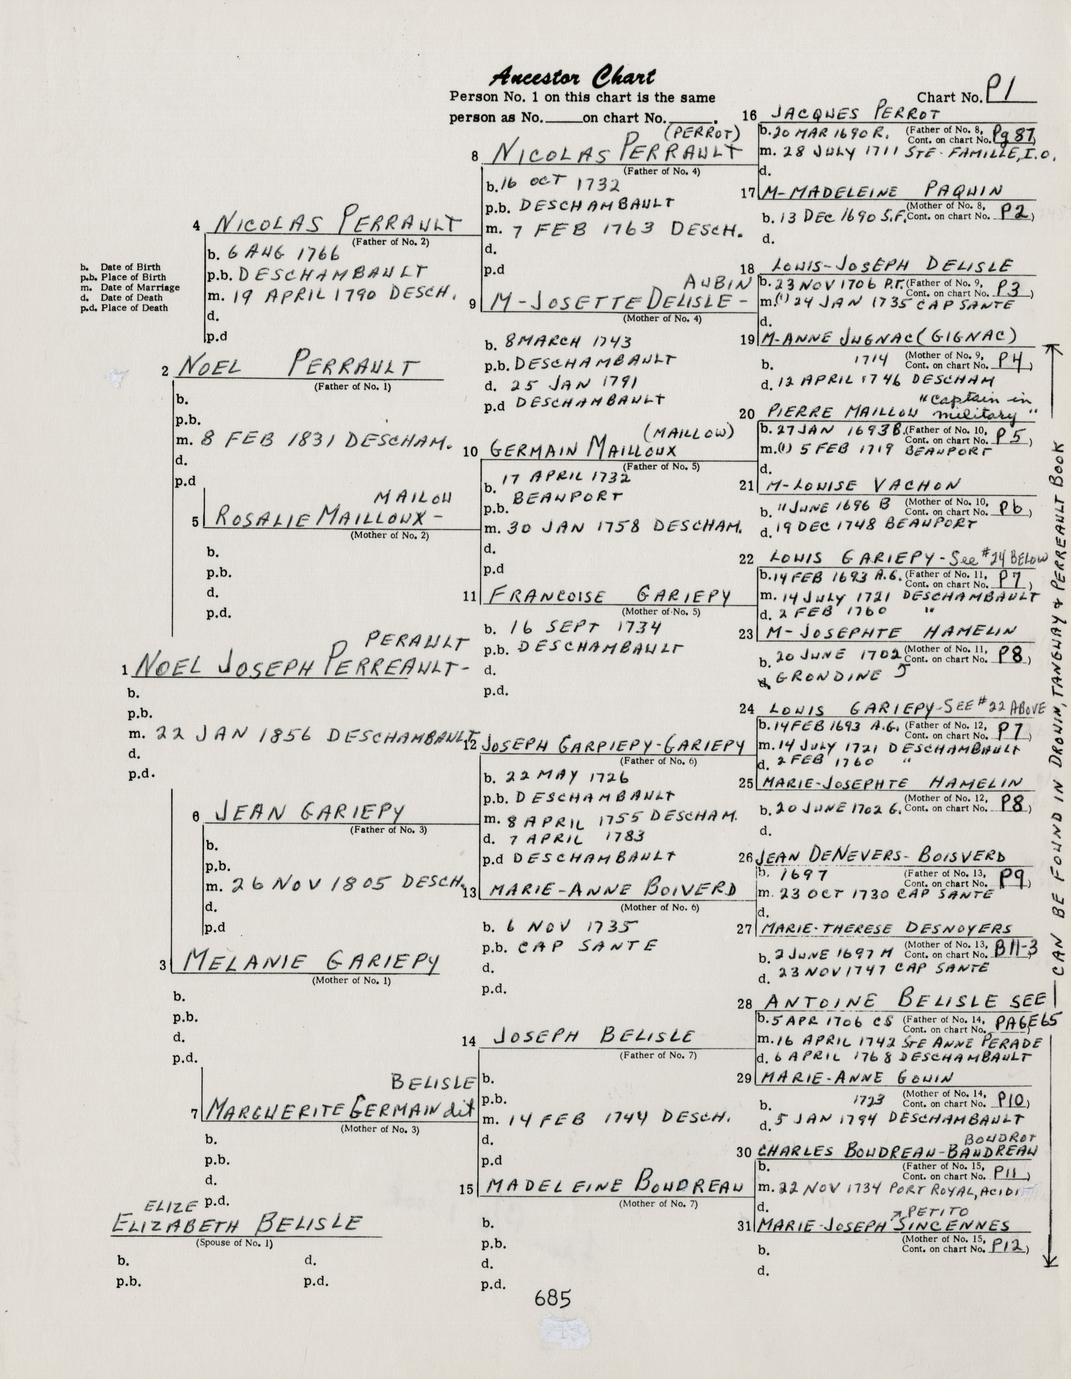 Ancestor Chart
Person No. 1 on this chart is the same
person as No. on chart No. .
Chart No. P1
b. Date of Birth
p.b. Place of Birth
m. Date of Marriage
d. Date of Death
p.d. Place of Death
1 NOEL JOSEPH PERREAULT-
PERAULT
b.
p.b.
m. 22 JAN 1856 DESCHAMBAULT
d.
p.d.
ELIZE
ELIZABETH BELISLE
(Spouse of No. 1)
b. d.
p.b. p.d.
2 NOEL PERRAULT
(Father of No. 1)
b.
p.b.
m. 8 FEB 1831 DESCHAM.
d.
p.d
3 MELANIE GARIEPY
(Mother of No. 1)
b.
p.b.
d.
p.d.
4 NICOLAS PERRAULT
(Father of No. 2)
b. 6 AUG 1766
p.b. DESCHAMBAULT
m. 19 APRIL 1790 DESCH.
d.
p.d
MAILOU
5 ROSALIE MAILLOUX-
(Mother of No. 2)
b.
p.b.
d.
p.d.
6 JEAN GARIEPY
(Father of No. 3)
b.
p.b.
m. 26 NOV 1805 DESCH.
d.
p.d
BELISLE
7 MARGUERITE GERMAIN dit
(Mother of No. 3)
b.
p.b.
d.
p.d.
(PERROT)
8 NICOLAS PERRAULT
(Father of No. 4)
b. 16 OCT 1732
p.b. DESCHAMBAULT
m. 7 FEB 1763 DESCH.
d.
p.d
AUBIN
9 M-JOSETTE DELISLE-
(Mother of No. 4)
b. 8 MARCH 1743
p.b. DESCHAMBAULT
d. 25 JAN 1791
p.d DESCHAMBAULT
(MAILLOW)
10 GERMAIN MAILLOUX
(Father of No. 5)
b. 17 APRIL 1732
p.b. BEAUPORT
m. 30 JAN 1758 DESCHAM.
d.
p.d
11 FRANCOISE GARIEPY
(Mother of No. 5)
b. 16 SEPT 1734
p.b. DESCHAMBAULT
d.
p.d.
12 JOSEPH GARPIEPY-GARIEPY
(Father of No. 6)
b. 22 MAY 1726
p.b. DESCHAMBAULT
m. 8 APRIL 1755 DESCHAM.
d. 7 APRIL 1783
p.d DESCHAMBAULT
13 MARIE-ANNE BOIVERD
(Mother of No. 6)
b. 6 NOV 1735
p.b. CAP SANTE
d.
p.d.
14 JOSEPH BELISLE
(Father of No. 7)
b.
p.b.
m. 14 FEB 1744 DESCH.
d.
p.d
15 MADELEINE BOUDREAU
(Mother of No. 7)
b.
p.b.
d.
p.d.
16 JACQUES PERROT
b. 20 MAR 1690 R. (Father of No. 8,
Cont. on chart No. Pg 87)
m. 28 JULY 1711 STE-FAMILLE, I.O.
d.
17 M-MADELEINE PAQUIN
(Mother of No. 8,
b. 13 DEC 1690 S.F. Cont. on chart No. P2)
d.
18 LOUIS-JOSEPH DELISLE
b. 23 NOV 1706 P.T. (Father of No. 9,
Cont. on chart No. P3)
m.(1) 24 JAN 1735 CAP SANTE
d.
19 M-ANNE JUGNAC (GIGNAC)
b. 1714 (Mother of No. 9,
Cont. on chart No. P4)
d. 12 APRIL 1746 DESCHAM
"captain in
20 PIERRE MAILLOU military"
b. 27 JAN 1693 B. (Father of No. 10,
Cont. on chart No. P5)
m.(1) 5 FEB 1719 BEAUPORT
d.
21 M-LOUISE VACHON
b. 11 JUNE 1696 B (Mother of No. 10,
Cont. on chart No. P6)
d. 19 DEC 1748 BEAUPORT
22 LOUIS GARIEPY-See #24 BELOW
b. 14 FEB 1693 A.G. (Father of No. 11,
Cont. on chart No. P7)
m. 14 JULY 1721 DESCHAMBAULT
d. 2 FEB 1760 "
23 M-JOSEPHTE HAMELIN
b. 20 JUNE 1702 (Mother of No. 11,
Cont. on chart No. P8)
d. GRONDINES
24 LOUIS GARIEPY-SEE #22 ABOVE
b. 14 FEB 1693 A.G. (Father of No. 12,
Cont. on chart No. P7)
m. 14 JULY 1721 DESCHAMBAULT
d. 2 FEB 1760 "
25 MARIE-JOSEPHTE HAMELIN
b. 20 JUNE 1702 G. (Mother of No. 12
Cont. on chart No. P8)
d.
26 JEAN DENEVERS-BOISVERD
b. 1697 (Father of No. 13,
Cont. on chart No. P9)
m. 23 OCT 1730 CAP SANTE
d.
27 MARIE-THERESE DESNOYERS
b. 2 JUNE 1697 M (Mother of No. 13,
Cont. on chart No. B11-3)
d. 23 NOV 1747 CAP SANTE
28 ANTOINE BELISLE SEE
b. 5 APR 1706 CS (Father of No. 14,
Cont. on chart No. PAGE 65)
m. 16 APRIL 1742 STE ANNE PERADE
d. 6 APRIL 1768 DESCHAMBAULT
29 MARIE-ANNE GOUIN
b. 1723 (Mother of No. 14,
Cont. on chart No. P10)
d. 5 JAN 1794 DESCHAMBAULT
BOUDROT
30 CHARLES BOUDREAU-BAUDREAU
b. (Father of No. 15,
Cont. on chart No. P11)
m. 22 NOV 1734 PORT ROYAL, ACIDI
d.
PETITO
31 MARIE-JOSEPH SINCENNES
(Mother of No. 15,
b. Cont. on chart No. P12)
d.
CAN BE FOUND IN DROUIN, TANGUAY & PERREAULT BOOK
685